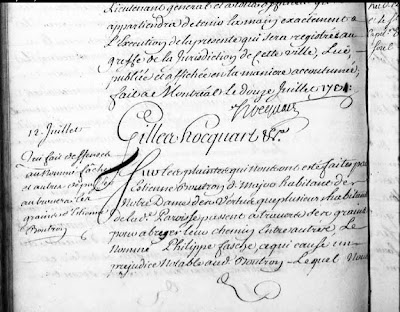 Lieutenant general et a tous officiers qu'il
appartiendra de tenir la main exactement a
l'Execution de la presente qui sera registrée au
greffe de la Jurisdiction de cette ville, Lüe,
publiée et affichée en la maniere accoutumée,
fait a Montréal le douze Juillet 1731
hocquart
12 Juillet
Qui fait deffenses
au nommé fache
et autres
au travers
grains Etienne
Boutron
Gilles hocquart &ca
Sur les plaintes qui nous ont été faites par
Etienne Boutron d. Major habitant de
Notre Dame de que plusieurs habitans
de lad.e Paroisse passent a travers ses grains
pour abreger leur chemin Entre autre, Le
Nommé Philippe fasche, a qui cause un
prejudice Notable aud. Boutron Lequel Nous